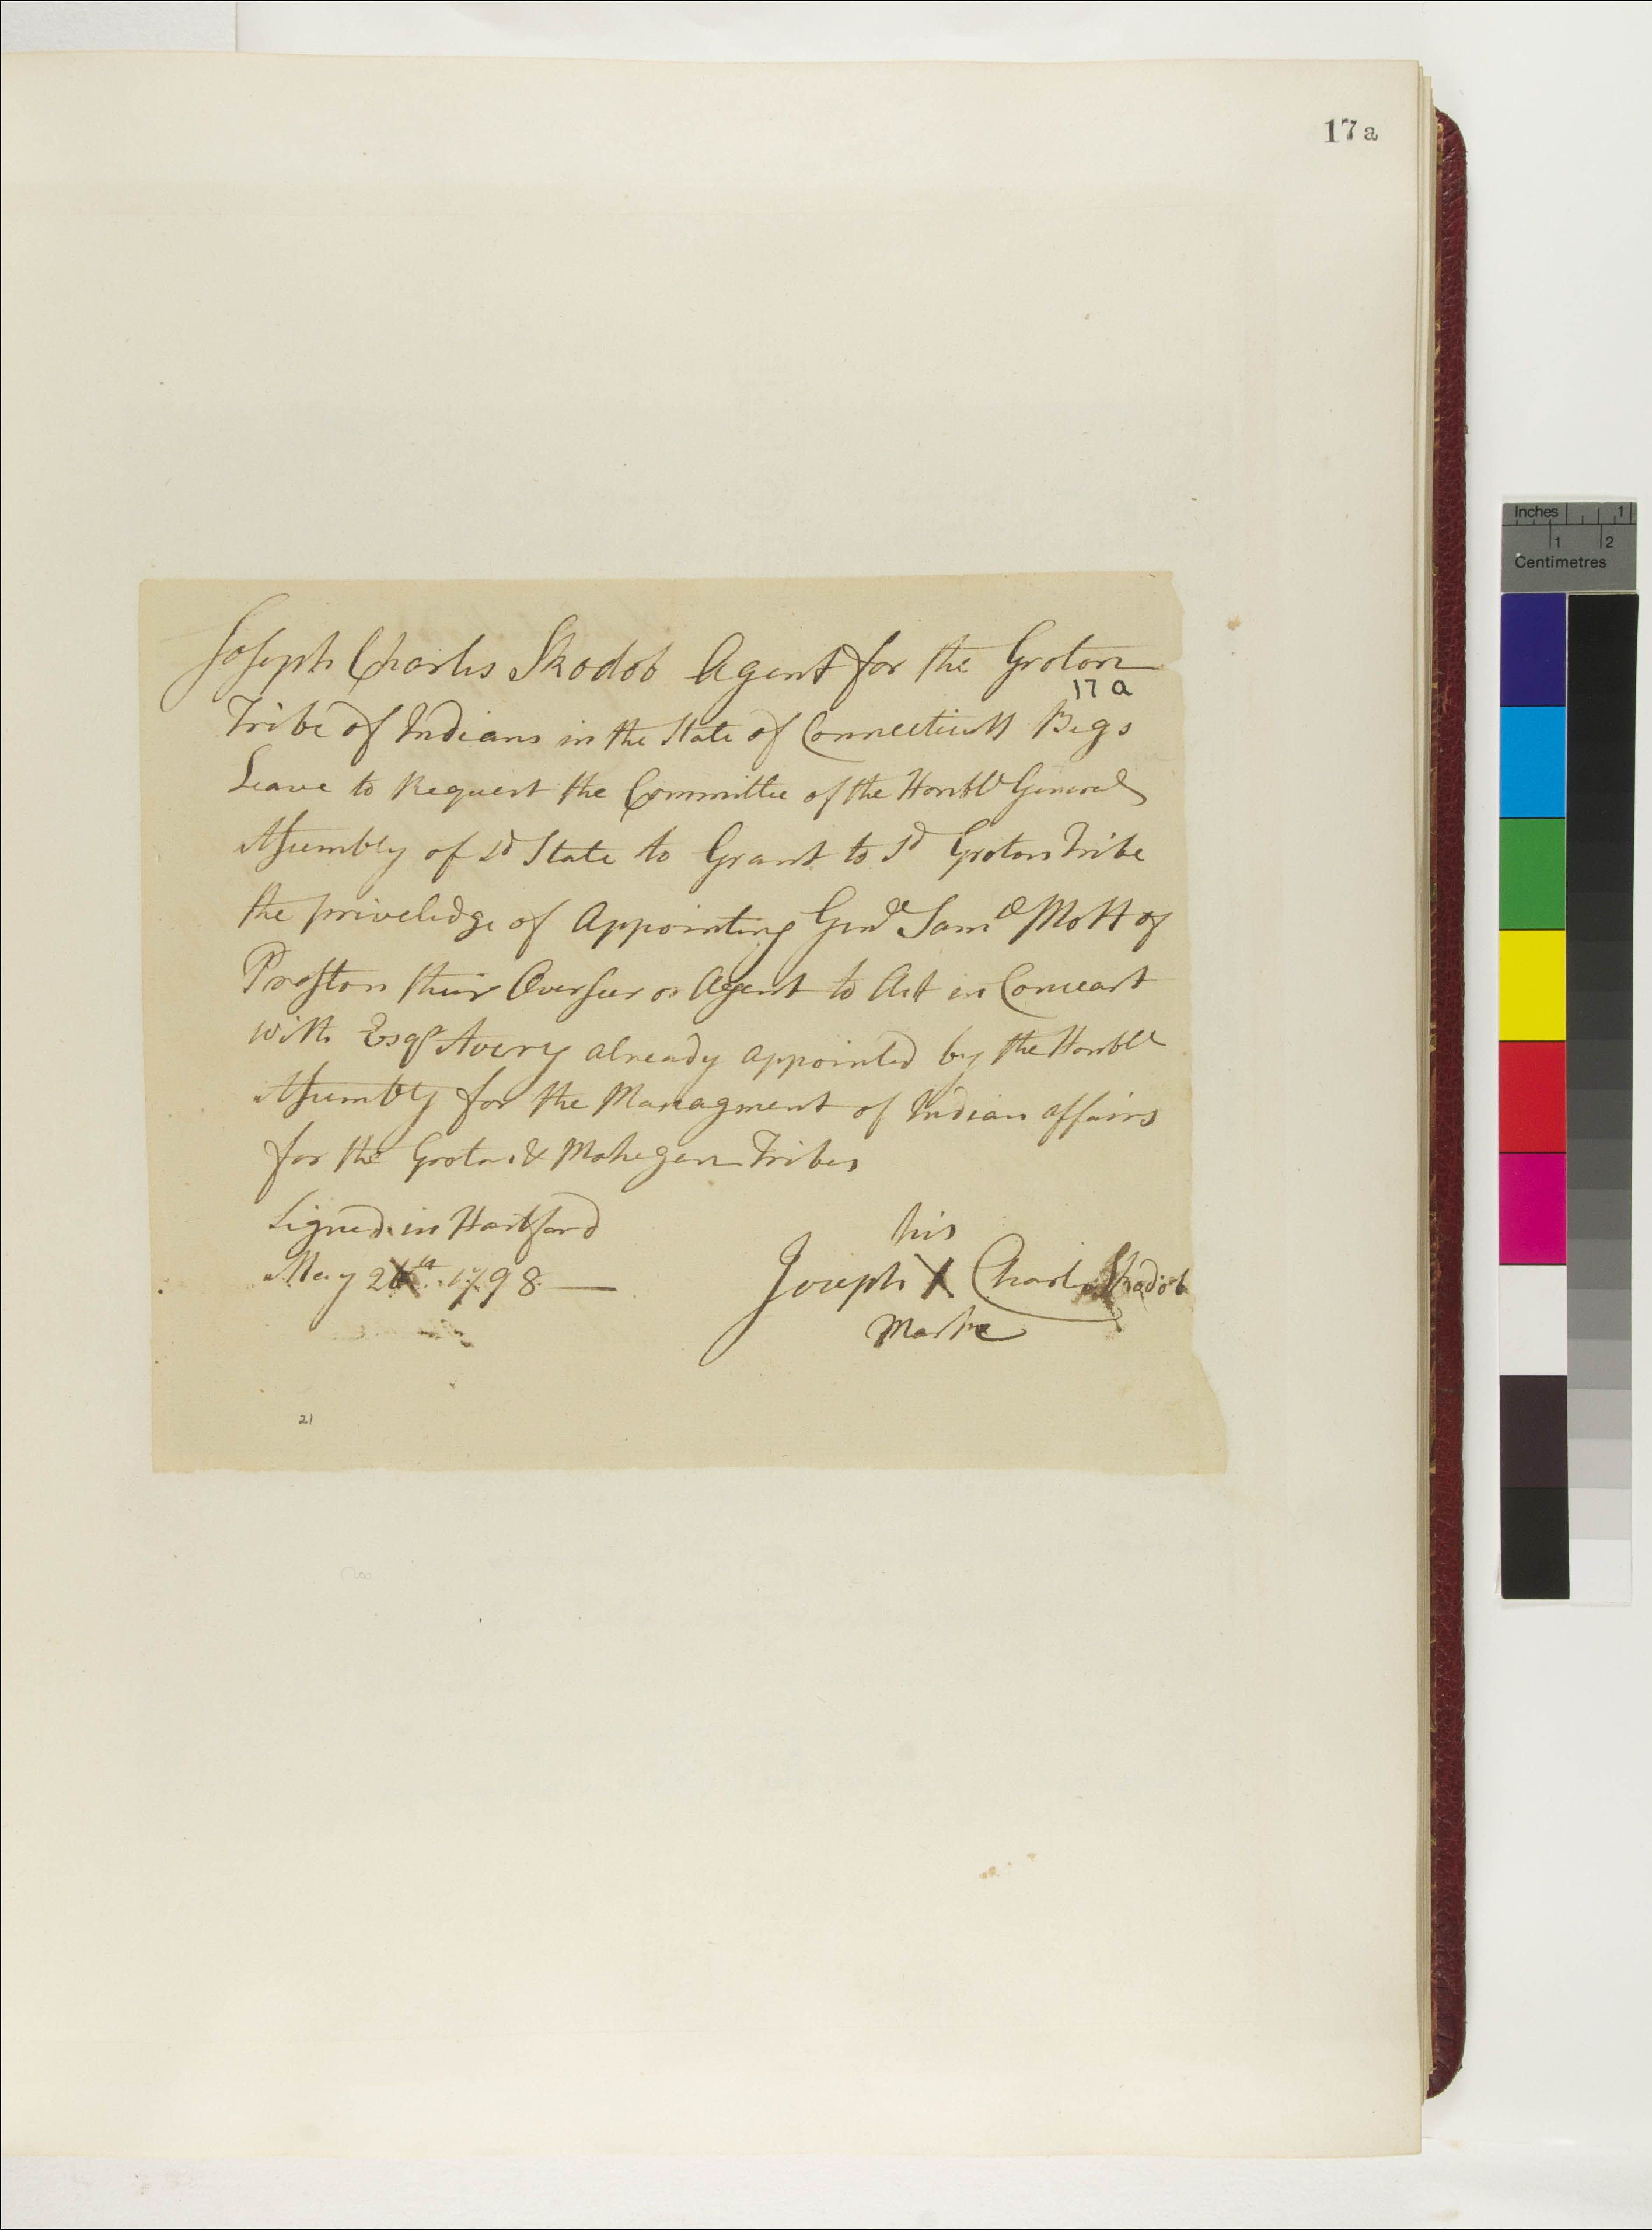 17a
Joseph Charles Skodob Agent for the Groton
17 a
Tribe of Indians in the State of Connecticutt Begs
Leave to Request the Committee of the Honble General
Assembly of sd State to Grant to sd Groton Tribe
the priveledge of Appointing Genl Saml Mott of
Preston their Overseer or Agent to Act in Conceart
with Esqr Avery already appointed by the Honble
Assembly for the Managment of Indian affairs
for the Groton & Mohegan Tribes
Signed in Hartford
May 1798
his
Joseph X Charles Skadob
Marke
21
Inches 1
1 2
Centimetres